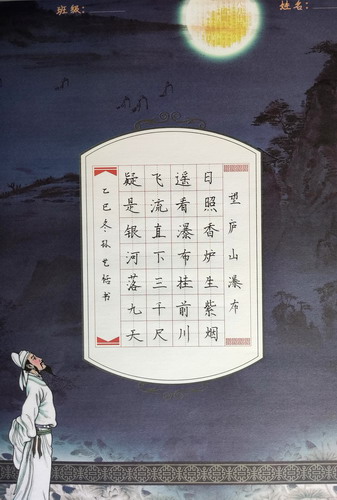 班级:
姓名:
望庐山瀑布
日照香炉生紫烟
遥看瀑布挂前川
飞流直下三千尺
疑是银河落九天
乙巳冬孙艺恬书